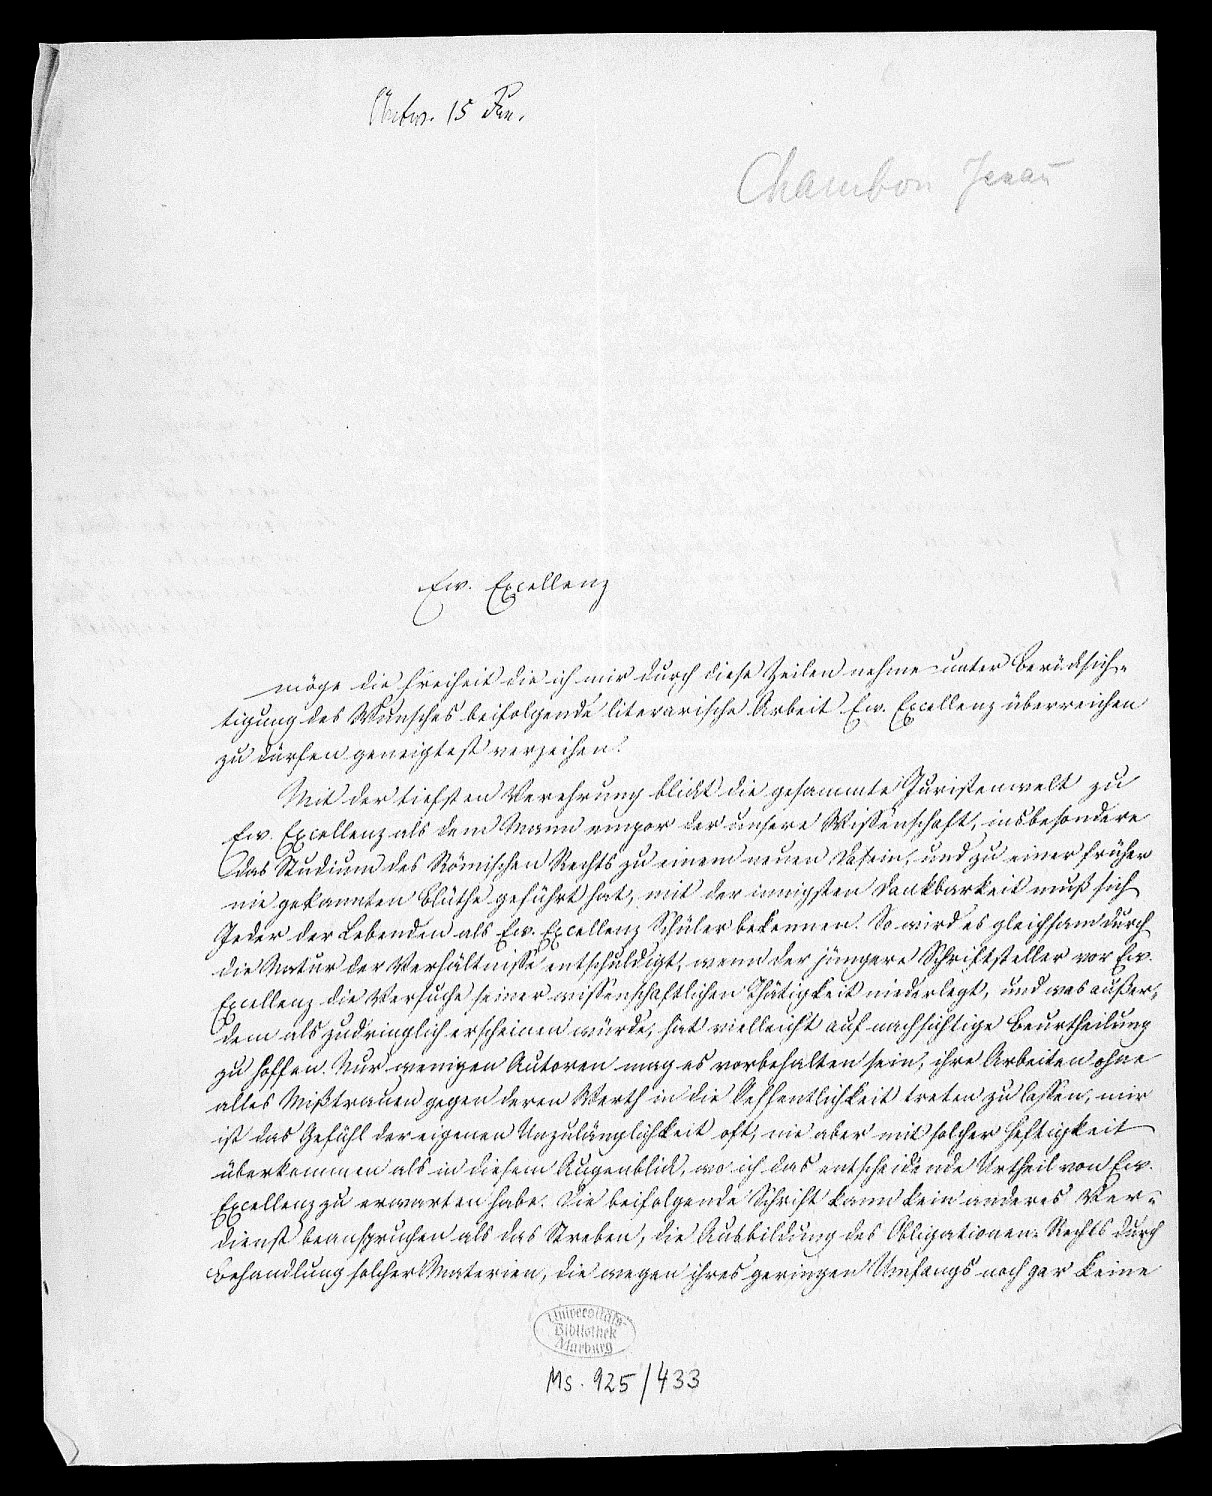 Antw. 15 Jan.
Chambon Jena
Ew. Excellenz
möge die Freiheit die ich mir durch diese Zeilen nehme unter Berücksich-
tigung des Wunsches beifolgende literarische Arbeit Ew. Excellenz überreichen
zu dürfen geneigtest verzeihen.
Mit der tiefsten Verehrung blickt die gesammte Juristenwelt zu
Ew. Excellenz als dem Mann empor der unsere Wissenschaft, insbesondere
das Studium des Römischen Rechts zu einem neuen Dasein, und zu einer früher
nie gekannten Blüthe geführt hat, mit der innigsten Dankbarkeit muß sich
Jeder der Lebenden als Ew. Excellenz Schüler bekennen. So wird es gleichsam durch
die Natur der Verhältnisse entschuldigt, wenn der jüngere Schriftsteller vor Ew.
Excellenz die Versuche seiner wissenschaftlichen Thätigkeit niederlegt, und was außer-
dem als zudringlich erscheinen würde, hat vielleicht auf nachsichtige Beurtheilung
zu hoffen. Nur wenigen Autoren mag es vorbehalten sein, ihre Arbeiten ohne
alles Mißtrauen gegen deren Werth in die Oeffentlichkeit treten zu lassen, mir
ist das Gefühl der eigenen Unzulänglichkeit oft, nie aber mit solcher Heftigkeit
überkommen als in diesem Augenblick, wo ich das entscheidende Urtheil von Ew.
Excellenz zu erwarten habe. Die beifolgende Schrift kann kein anderes Ver-
dienst beanspruchen als das Streben, die Ausbildung des Obligationen-Rechts durch
Behandlung solcher Materien, die wegen ihres geringen Umfangs noch gar keine
Universitäts-
Bibliothek
Marburg
Ms. 925/433